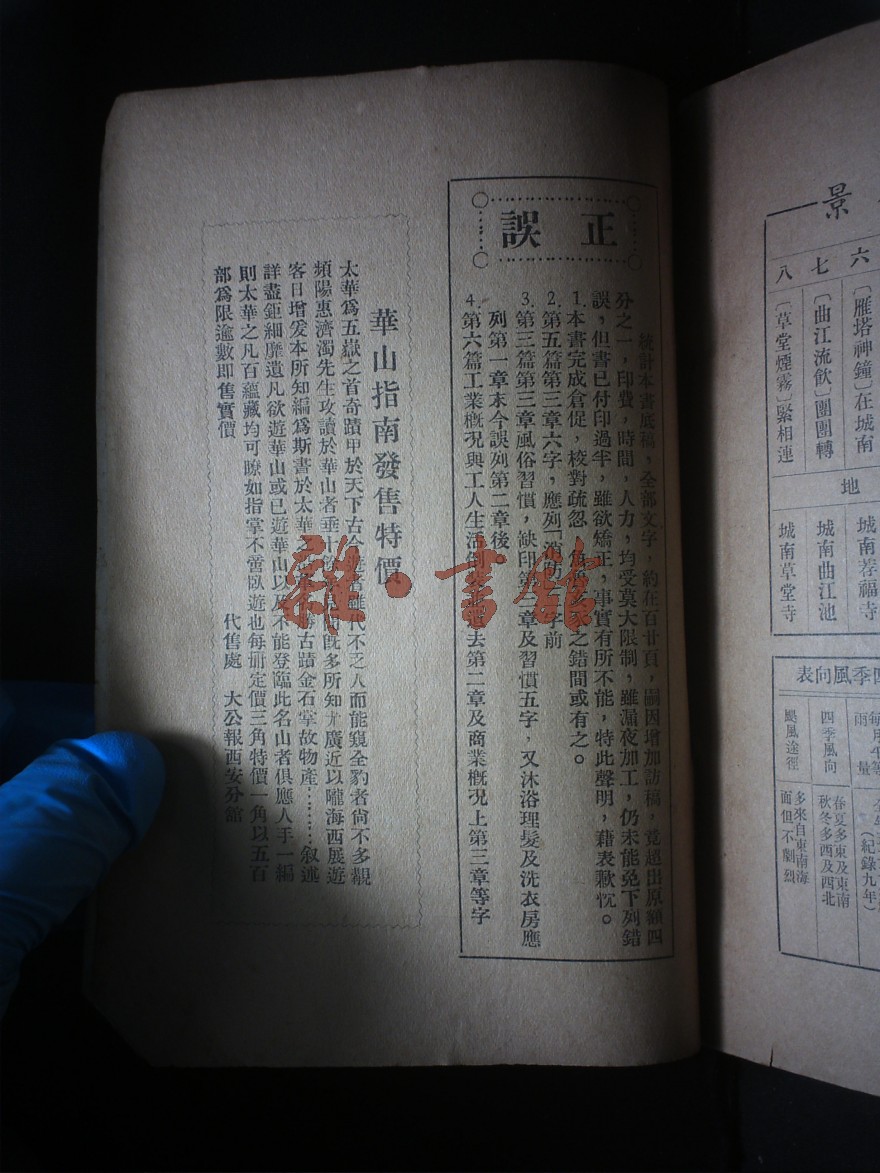 正誤
統計本書底稿，全部文字，約在百廿頁，嗣因增加訪稿，竟超出原額四
分之一，印費，時間，人力，均受莫大限制，雖漏夜加工，仍未能免下列錯
誤，但書已付印過半，雖欲矯正，事實有所不能，特此聲明，藉表歉忱。
1.本書完成倉促，校對疏忽，之錯間或有之。
2.第五篇第三章六字，應列「消防」字前
3.第三篇第三章風俗習慣，缺印第三章及習慣五字，又沐浴理髮及洗衣房應
列第一章末今誤列第二章後
4.第六篇工業概況與工人生活去第二章及商業概況上第三章等字
華山指南發售特價
太華爲五嶽之首奇蹟甲於天下古今遊者雖代不乏人而能窺全豹者尙不多覯
頻陽惠濟濁先生攻讀於華山者垂十既多所知尤廣近以隴海西展遊
客日增爰本所知編爲斯書於太華之古蹟金石掌故物產………敘述
詳盡鉅細靡遺凡欲遊華山或已遊華山以及不能登臨此名山者俱應人手一編
則太華之凡百蘊藏均可瞭如指掌不啻臥遊也每册定價三角特價一角以五百
部爲限逾數即售實價
代售處 大公報西安分館
雜·書館
景
六
〔雁塔神鐘〕在城南
七
〔曲江流飲〕團團轉
八
〔草堂煙霧〕緊相連
地
城南荐福寺
城南曲江池
城南草堂寺
四季風向表
雨量
(紀錄九年)
四季風向
春夏多東及東南
秋冬多西及西北
颶風途徑
多來自東南海
面但不劇烈